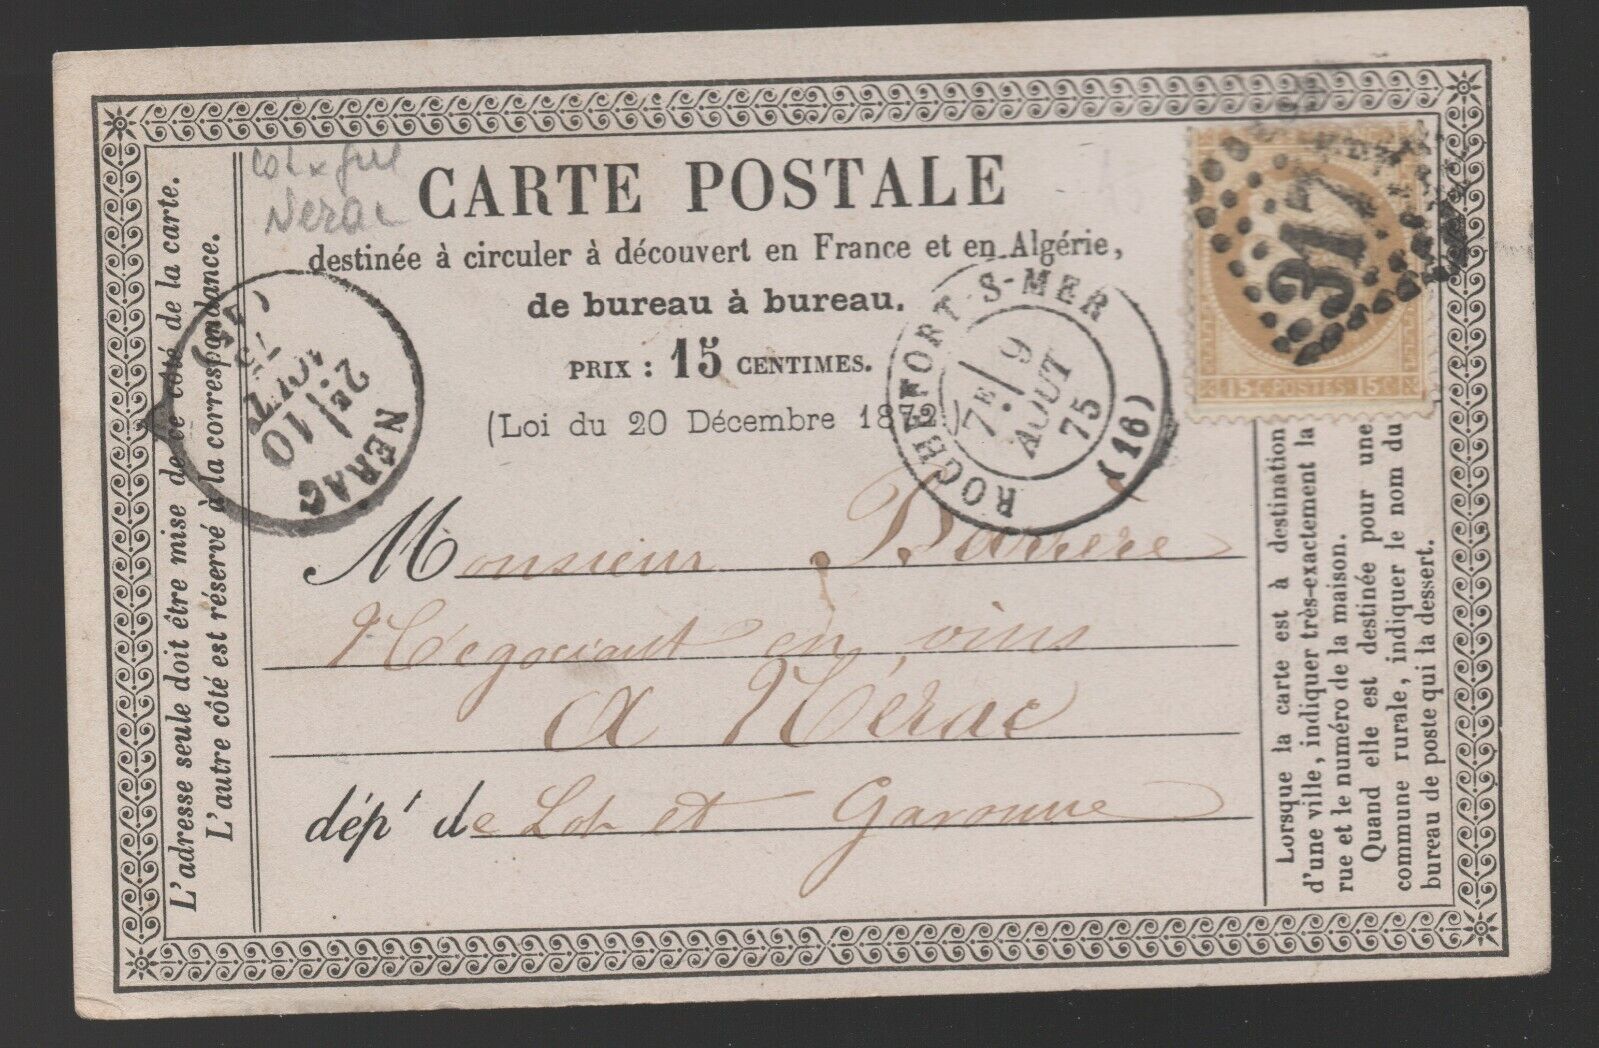 Nerac
CARTE POSTALE
destinée à circuler à découvert en France et en Algérie,
de bureau à bureau.
PRIX : 15 CENTIMES.
(Loi du 20 Décembre 1872)
ROCHEFORT-S-MER
7E 9
AOUT
75
(16)
NÉRAC
2E 10
AOUT
75
(45)
3177
15C POSTES 15C
Monsieur Barrère
Négociant en vins
à Nérac
dépt de Lot et Garonne
L'adresse seule doit être mise de ce côté de la carte.
L'autre côté est réservé à la correspondance.
Lorsque la carte est à destination
d'une ville, indiquer très-exactement la
rue et le numéro de la maison.
Quand elle est destinée pour une
commune rurale, indiquer le nom du
bureau de poste qui la dessert.